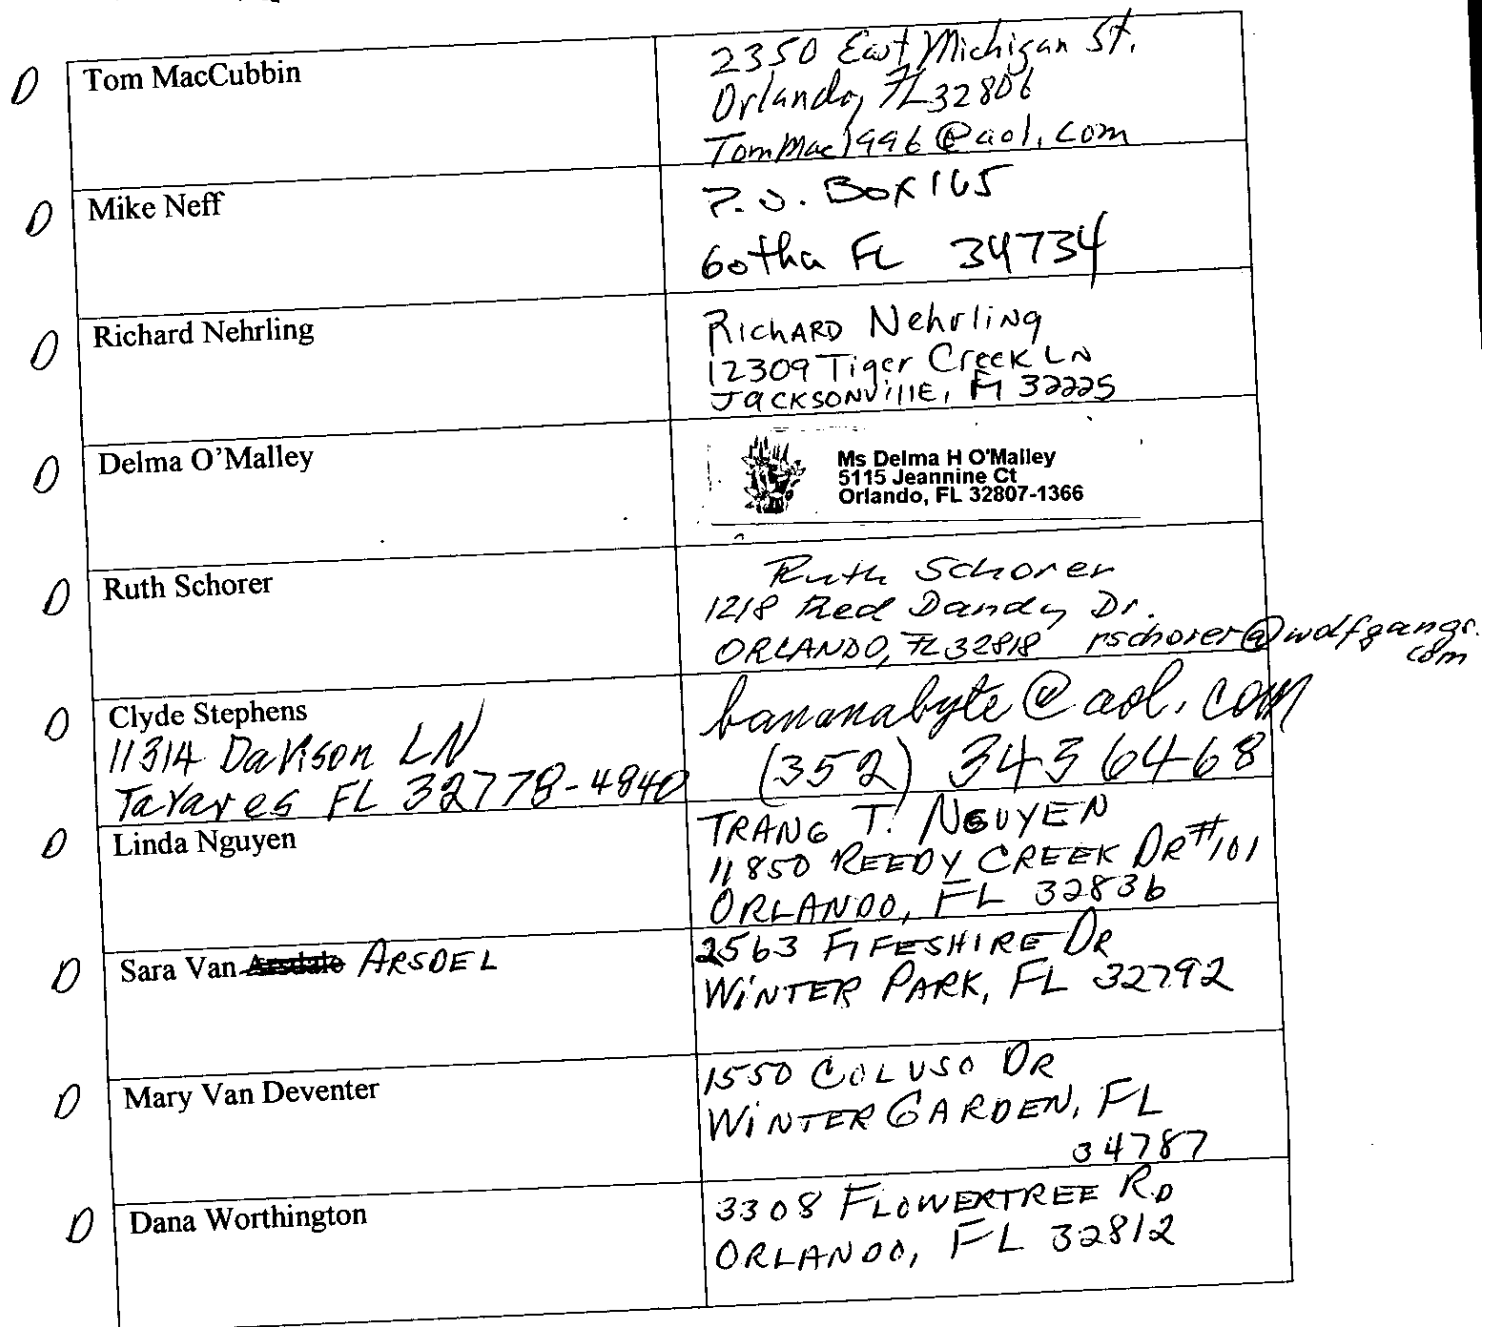 D Tom MacCubbin
2350 East Michigan St.
Orlando, FL 32806
TomMac1996@aol.com
D Mike Neff
P.O. Box 165
Gotha FL 34734
D Richard Nehrling
RichARD Nehrling
12309 Tiger Creek LN
JACKSONVillE, Fl 32225
D Delma O'Malley
Ms Delma H O'Malley
5115 Jeannine Ct
Orlando, FL 32807-1366
D Ruth Schorer
Ruth Schorer
1218 Red Dandy Dr.
ORLANDO, FL 32818 rschorer@wolfgangs.
com
D Clyde Stephens
11314 Davison LN
Tavares FL 32778-4840
bananabyte@aol.com
(352) 343 6468
D Linda Nguyen
TRANG T. NGUYEN
11850 REEDY CREEK DR #101
ORLANDO, FL 32836
D Sara Van Arsdale ARSDEL
2563 FIFESHIRE DR
WINTER PARK, FL 32792
D Mary Van Deventer
1550 COLUSO DR
WINTER GARDEN, FL
34787
D Dana Worthington
3308 FLOWERTREE RD
ORLANDO, FL 32812